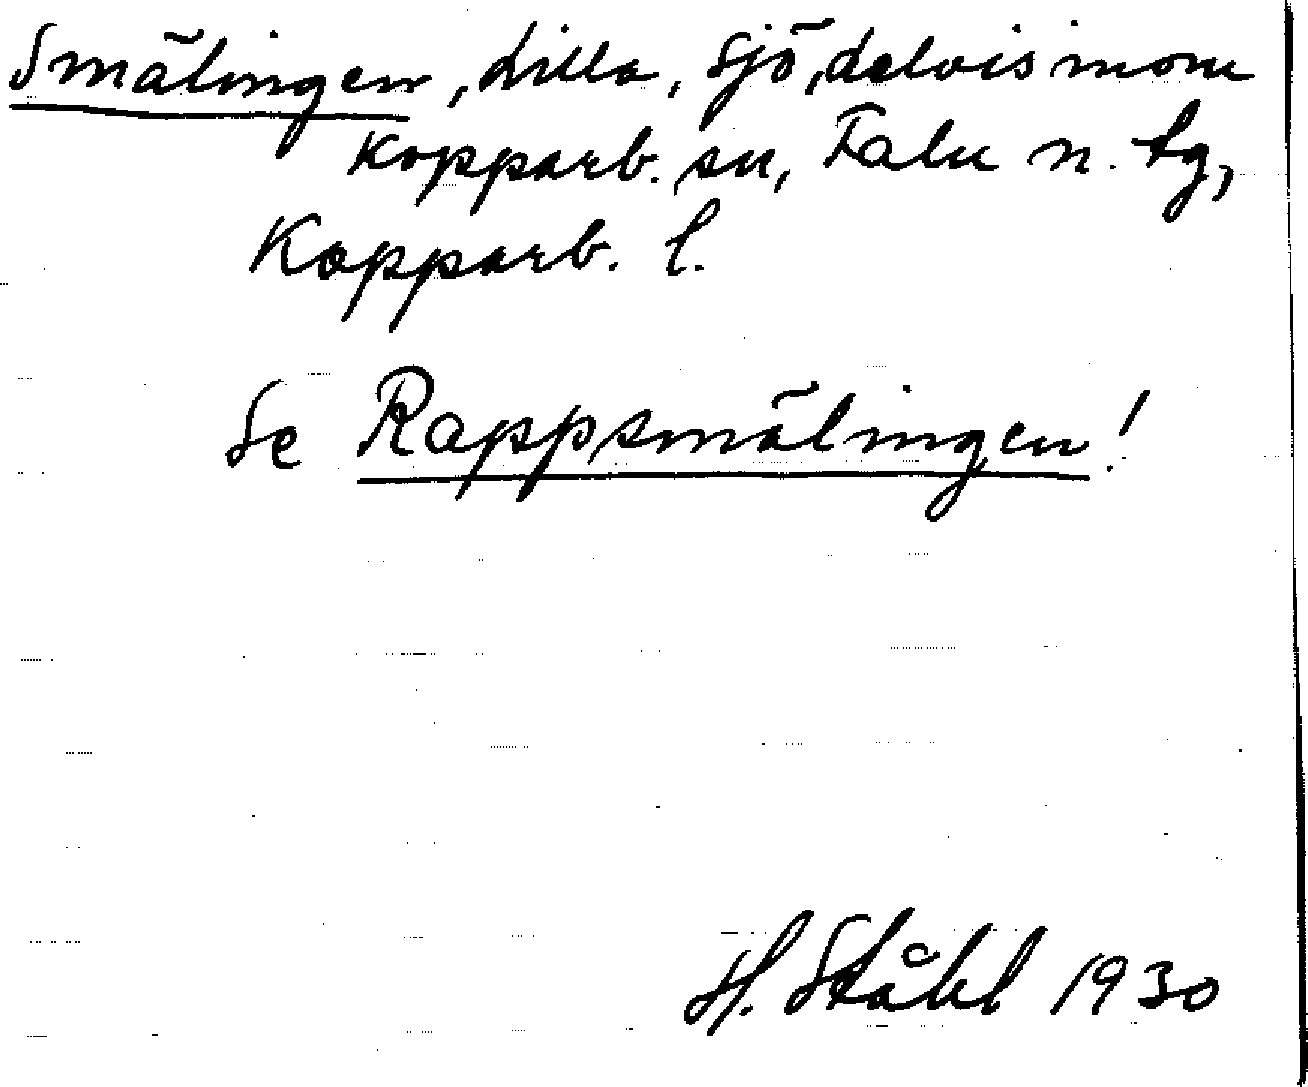 Smälingen, Lilla, Sjö, delvis inom
Kopparb. sn, Falu n. tg,
Kopparb. l.
Se Rappsmälingen!
H. Ståhl 1930